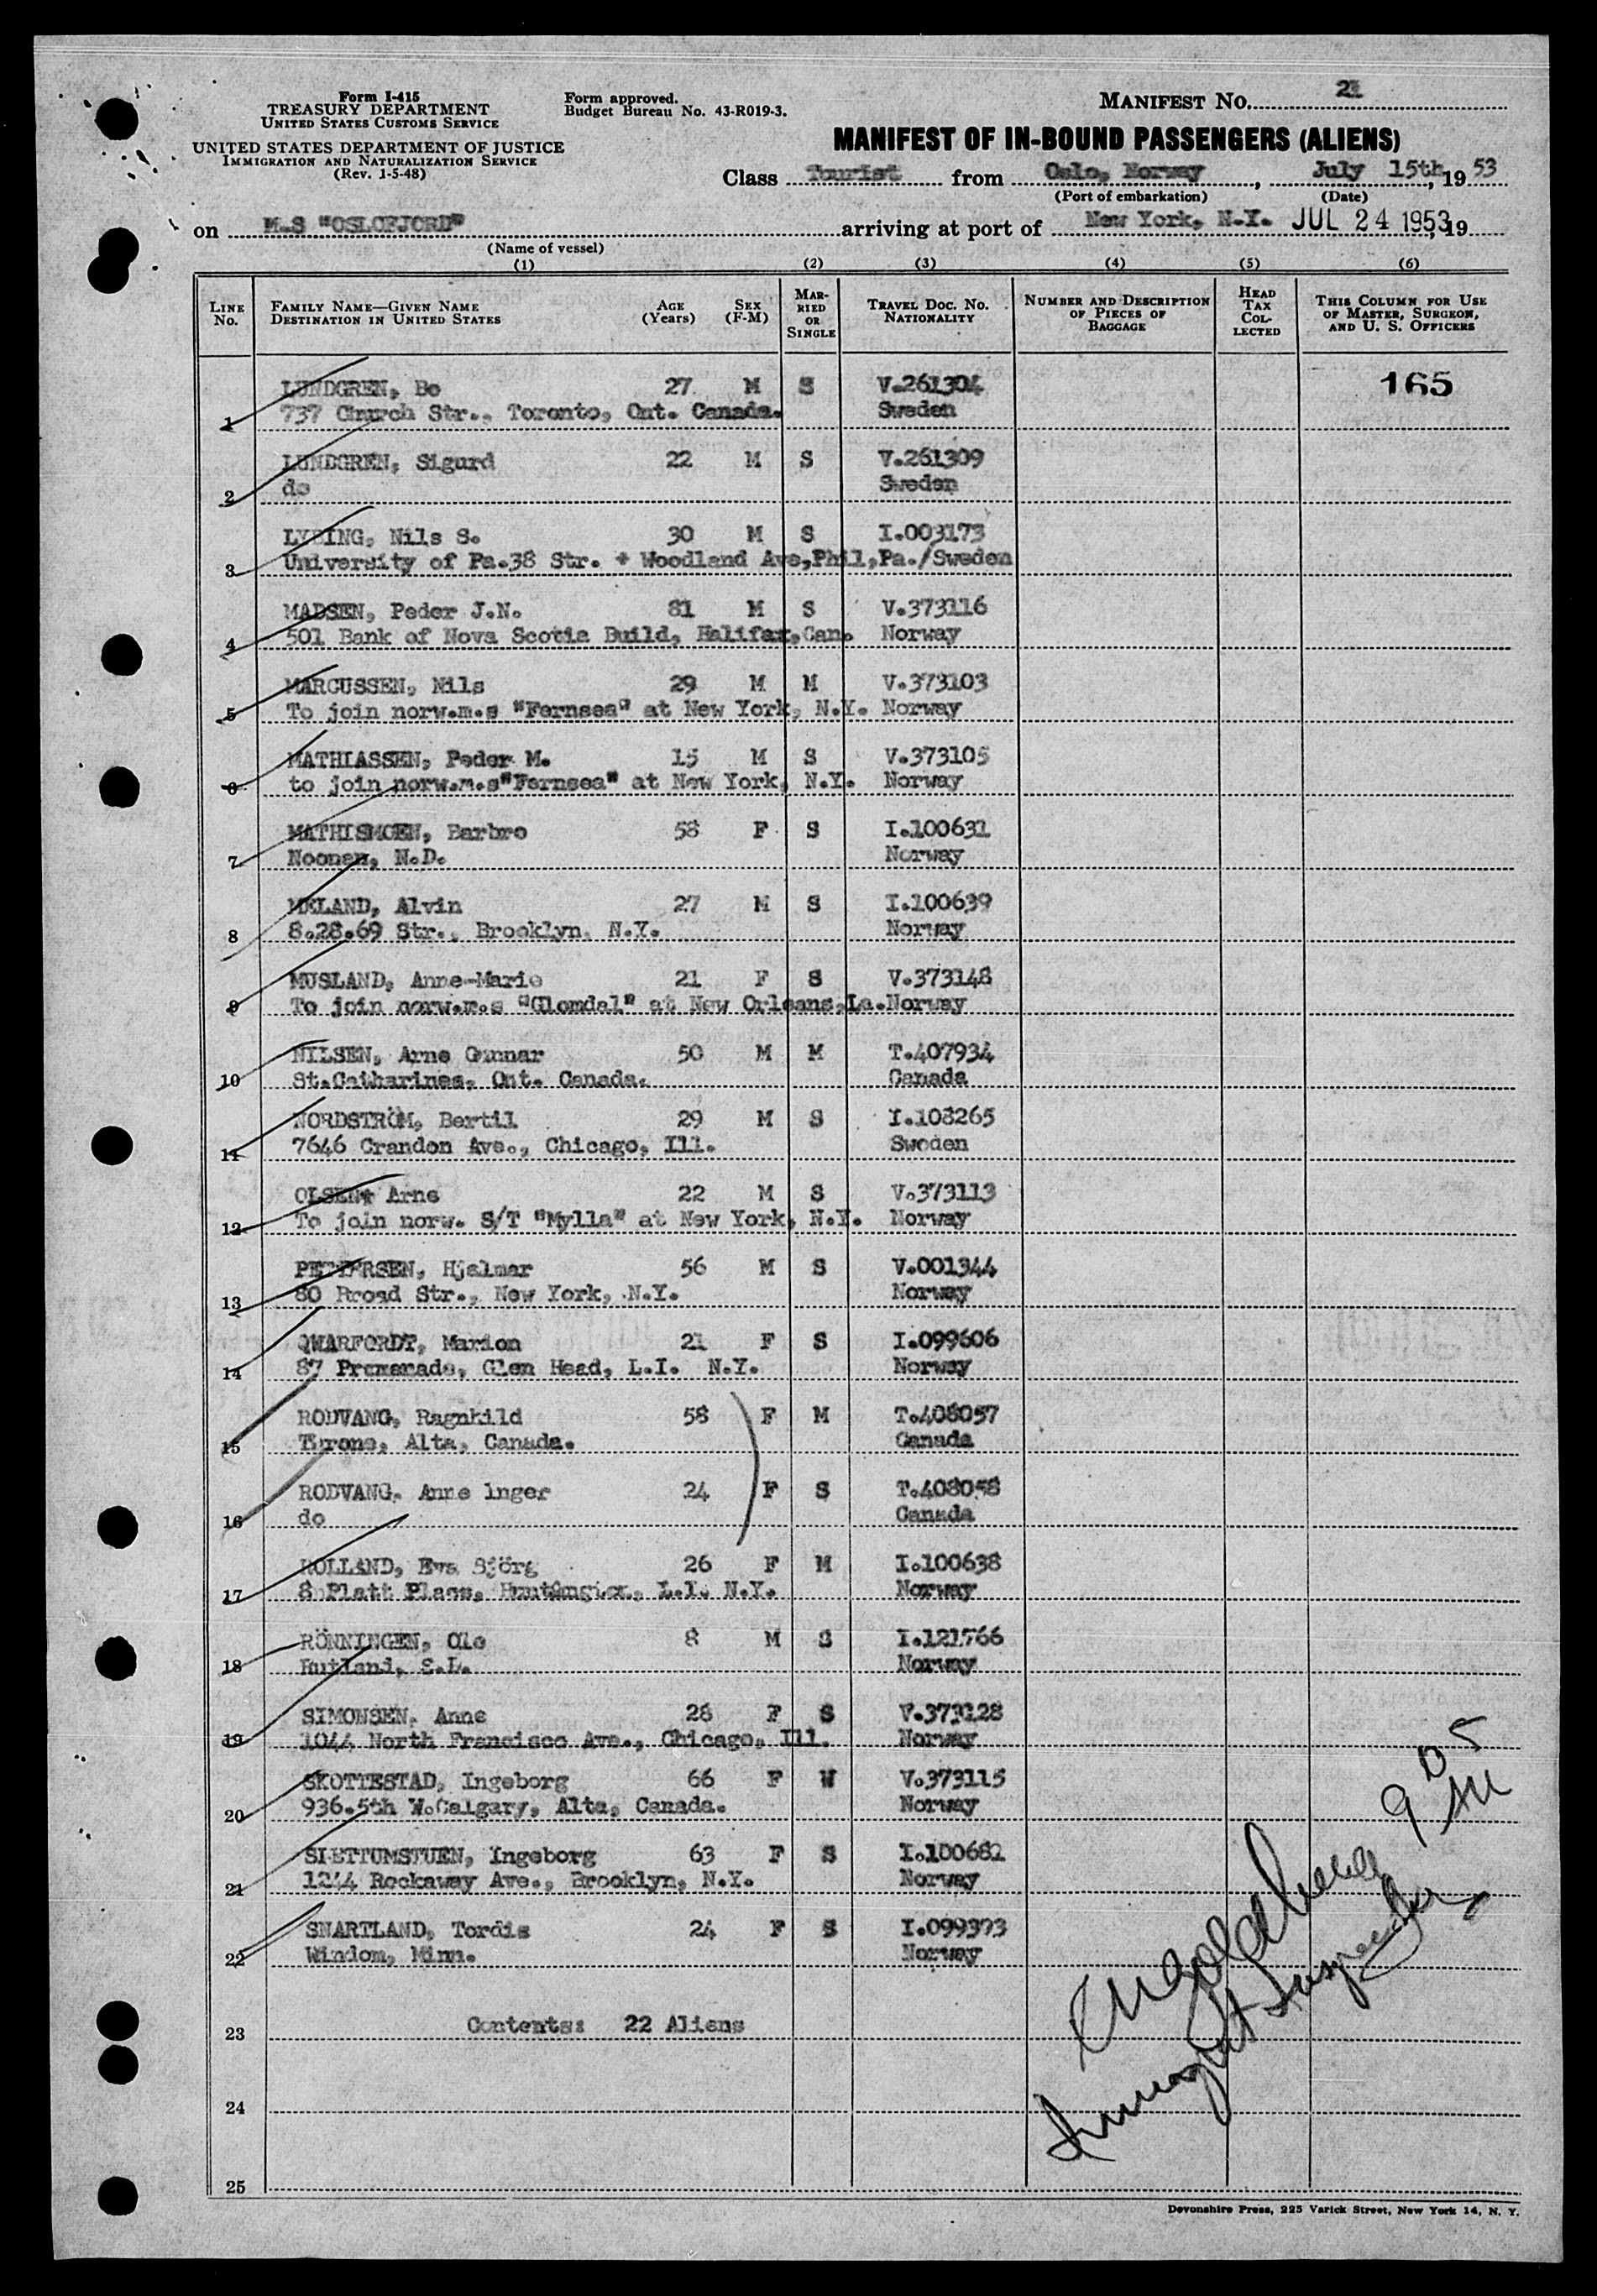 Form I-415
TREASURY DEPARTMENT
UNITED STATES CUSTOMS SERVICE
UNITED STATES DEPARTMENT OF JUSTICE
IMMIGRATION AND NATURALIZATION SERVICE
(Rev. 1-5-48)
Form approved.
Budget Bureau No. 43-R019-3.
MANIFEST NO. 21
MANIFEST OF IN-BOUND PASSENGERS (ALIENS)
Class Tourist from Oslo, Norway, July 15th, 19 53
(Port of embarkation) (Date)
on M.S "OSLOFJORD" arriving at port of New York, N.Y. JUL 24 1953, 19
(Name of vessel)
(1) (2) (3) (4) (5) (6)
LINE No. FAMILY NAME—GIVEN NAME DESTINATION IN UNITED STATES AGE (Years) SEX (F-M) MARRIED OR SINGLE TRAVEL DOC. NO. NATIONALITY NUMBER AND DESCRIPTION OF PIECES OF BAGGAGE HEAD TAX COLLECTED THIS COLUMN FOR USE OF MASTER, SURGEON, AND U. S. OFFICERS
LUNDGREN, Bo 27 M S V.261304 165
1 737 Church Str., Toronto, Ont. Canada. Sweden
LUNDGREN, Sigurd 22 M S V.261309
2 do Sweden
LYBING, Nils S. 30 M S I.003173
3 University of Pa.38 Str. + Woodland Ave,Phil,Pa./Sweden
MADSEN, Peder J.N. 81 M S V.373116
4 501 Bank of Nova Scotia Build, Halifax,Can. Norway
MARCUSSEN, Nils 29 M M V.373103
5 To join norw.m.s "Fernsea" at New York, N.Y. Norway
MATHIASSEN, Peder M. 15 M S V.373105
6 to join norw.m.s"Fernsea" at New York, N.Y. Norway
MATHISMOEN, Barbro 58 F S I.100631
7 Noonan, N.D. Norway
MELAND, Alvin 27 M S I.100639
8 8.28.69 Str., Brooklyn, N.Y. Norway
MUSLAND, Anne-Marie 21 F S V.373148
9 To join norw.m.s "Glomdal" at New Orleans,La.Norway
NILSEN, Arne Gunnar 50 M M T.407934
10 St.Catharines, Ont. Canada. Canada
NORDSTRÖM, Bertil 29 M S I.108265
11 7646 Crandon Ave., Chicago, Ill. Sweden
OLSEN, Arne 22 M S V.373113
12 To join norw. S/T "Mylla" at New York, N.Y. Norway
PETTERSEN, Hjalmar 56 M S V.001344
13 80 Broad Str., New York, N.Y. Norway
QWARFORDT, Marion 21 F S I.099606
14 87 Promenade, Glen Head, L.I. N.Y. Norway
RODVANG, Ragnhild 58 F M T.408057
15 Tyrone, Alta, Canada. Canada
RODVANG, Anne Inger 24 F S T.408058
16 do Canada
ROLLAND, Eva Björg 26 F M I.100638
17 8 Platt Place, Huntington, L.I. N.Y. Norway
RÖNNINGEN, Ole 8 M S I.121766
18 Rutland, Norway
SIMONSEN, Anne 28 F S V.373128
19 1044 North Francisco Ave., Chicago, Ill. Norway
SKOTTESTAD, Ingeborg 66 F W V.373115
20 936.5th W.Calgary, Alta, Canada. Norway
SLETTUMSTUEN, Ingeborg 63 F S I.100682
21 1244 Rockaway Ave., Brooklyn, N.Y. Norway
SNARTLAND, Tordis 24 F S I.099393
22 Windom, Minn. Norway
23 Contents: 22 Aliens
24
25
9 05 AM
Immigrant Inspector
Devonshire Press, 225 Varick Street, New York 14, N. Y.